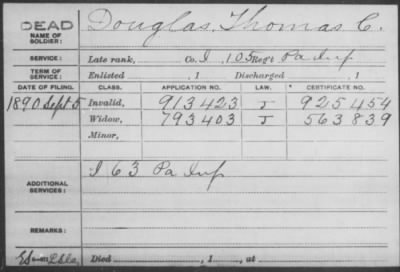 DEAD
NAME OF SOLDIER: Douglas, Thomas C.
SERVICE: Late rank, Co. I, 105 Reg't Pa Inf
TERM OF SERVICE: Enlisted , 1 Discharged , 1
DATE OF FILING. CLASS. APPLICATION NO. LAW. CERTIFICATE NO.
1890 Sept 5 Invalid, 913423 J 925454
Widow, 793403 J 563839
Minor,
I 63 Pa Inf
ADDITIONAL SERVICES:
REMARKS:
Died , 1 , at